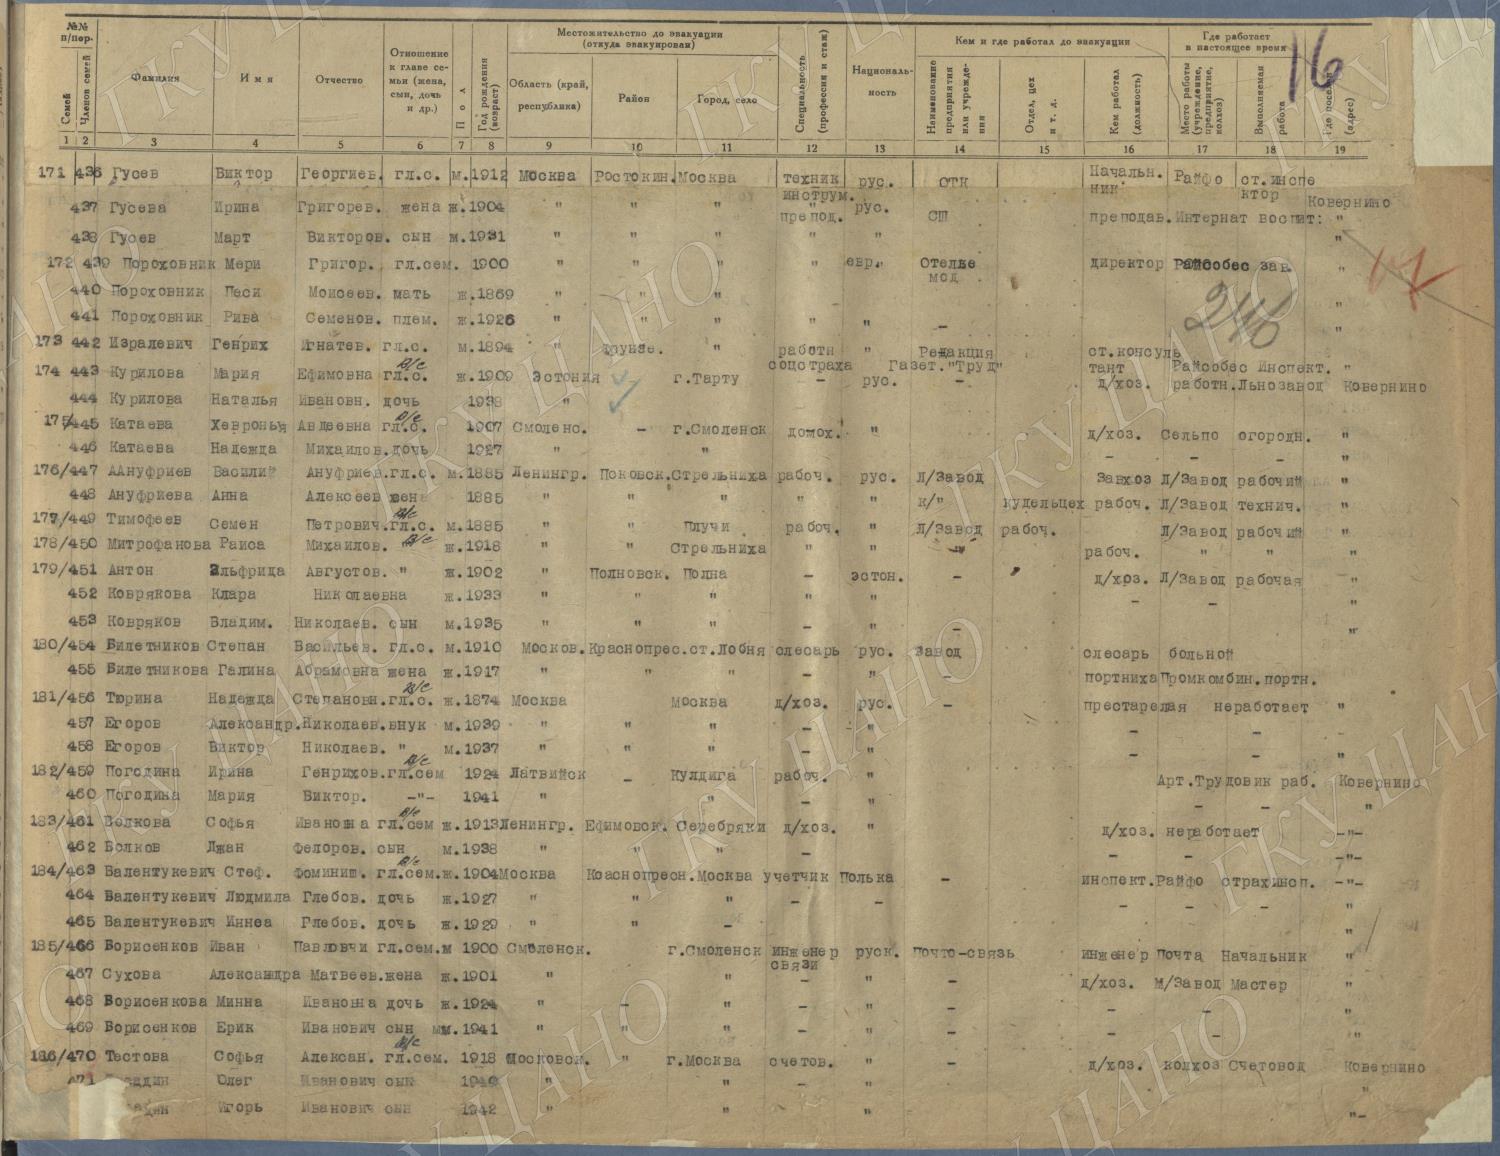 16
№№ п/пор. Местожительство до эвакуации (откуда эвакуирован) Кем и где работал до эвакуации Где работает в настоящее время
Семей Членов семей Фамилия Имя Отчество Отношение к главе семьи (жена, сын, дочь и др.) Пол Год рождения (возраст) Область (край, республика) Район Город, село Специальность (профессия и стаж) Националь-ность Наименование предприятия или учреждения Отдел, цех и т. д. Кем работал (должность) Место работы (учреждение, предприятие, колхоз) Выполняемая работа Где поселен (адрес)
1 2 3 4 5 6 7 8 9 10 11 12 13 14 15 16 17 18 19
171 436 Гусев Виктор Георгиев. гл.с. м. 1912 Москва Ростокин. Москва техник инструм. рус. ОТК Начальн. ник. Райфо ст.инспектор Ковернино
437 Гусева Ирина Григорев. жена ж. 1904 " " " препод. рус. СШ преподав. Интернат воспит: "
438 Гусев Март Викторов. сын м. 1931 " " " " " "
172 439 Пороховник Мери Григор. гл.сем. 1900 " " " " евр." Отелье мсд директор Райсобес зав. "
440 Пороховник Песи Моисеев. мать ж. 1869 " " " "
441 Пороховник Рива Семенов. плем. ж. 1926 " " " " " – "
246
173 442 Изралевич Генрих Игнатев. гл.с. м. 1894 " Фрунзе. " работн соцстраха " Редакция Газет."Труд" ст.консультант Райсобес Инспект. "
174 443 Курилова Мария Ефимовна гл.с. в/с ж. 1909 Эстония г.Тарту – рус. – д/хоз. работн. Льнозавод Ковернино
444 Курилова Наталья Ивановн. дочь 1938 "
175/445 Катаева Хевронья Авдеевна гл.с. в/с 1907 Смоленс. – г.Смоленск домох. " д/хоз. Сельпо огородн. "
446 Катаева Надежда Михайлов. дочь 1927 " " – – – "
176/447 ААнуфриев Василий Ануфриев. гл.с. м. 1885 Ленингр. Псковск. Стрельниха рабоч. рус. Л/Завод Завхоз Л/Завод рабочий "
448 Ануфриева Анна Алексеев жена 1885 " " " " " к/" кудельцех рабоч. Л/Завод технич. "
177/449 Тимофеев Семен Петрович. гл.с. в/с м. 1885 " " Плучи рабоч. " Л/Завод рабоч. Л/Завод рабочий "
178/450 Митрофанова Раиса Михайлов. в/с ж. 1918 " " Стрельниха " " " рабоч. " " "
179/451 Антон Эльфрида Августов. " ж. 1902 " Полновск. Полна – эстон. – д/хоз. Л/Завод рабочая "
452 Коврякова Клара Николаевна ж. 1933 " " " " " – – "
453 Ковряков Владим. Николаев. сын м. 1935 " " " – " – "
180/454 Билетников Степан Васильев. гл.с. м. 1910 Москов. Краснопрес. ст.Лобня слесарь рус. Завод слесарь больной
455 Билетникова Галина Абрамовна жена ж. 1917 " " " – " – портниха Промкомбин. портн.
181/456 Тюрина Надежда Степановн. гл.с. в/с ж. 1874 Москва Москва д/хоз. рус. – престарелая неработает "
457 Егоров Александр. Николаев. внук м. 1939 " " " – " – –
458 Егоров Виктор Николаев. " м. 1937 " " " – " – –
182/459 Погодина Ирина Генрихов. гл.сем в/с 1924 Латвийск – Кулдига рабоч. " Арт.Трудовик раб. Ковернино
460 Погодина Мария Виктор. –"– 1941 " " – " – – "
183/461 Волкова Софья Ивановна гл.сем в/с ж. 1913 Ленингр. Ефимовск. Серебряки д/хоз. " д/хоз. неработает –"–
462 Волков Лжан Федоров. сын м. 1938 " " " – – – –"–
184/463 Валентукевич Стеф. Фоминиш. гл.сем. в/с ж. 1904 Москва Коаснопресн. Москва учетчик Полька – инспект. Райфо страхинсп. –"–
464 Валентукевич Людмила Глебов. дочь ж. 1927 " " " – – – – – "
465 Валентукевич Иннеа Глебов. дочь ж. 1929 " " – "
185/466 Борисенков Иван Павловчи гл.сем. м 1900 Смоленск. г.Смоленск инженер связи руск. Почто-связь инженер Почта Начальник "
467 Сухова Александра Матвеев. жена ж. 1901 " " – " – д/хоз. М/Завод Мастер "
468 Борисенкова Минна Ивановна дочь ж. 1924 " – " – " – – – "
469 Борисенков Ерик Иванович сын мм. 1941 " " " – " – – – "
186/470 Тестова Софья Алексан. гл.сем. в/с 1918 Московск. " г.Москва счетов. " – д/хоз. колхоз Счетовод Ковернино
471 Олег Иванович сын 1940 " " – " "
Игорь Иванович сын 1942 " " " "–